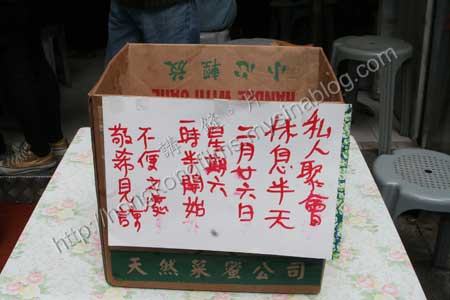 小心輕放
HANDLE WITH CARE
私人聚會
休息半天
二月廿六日
星期六
一時半開始
不便之處
敬希見諒
天然蜜公司